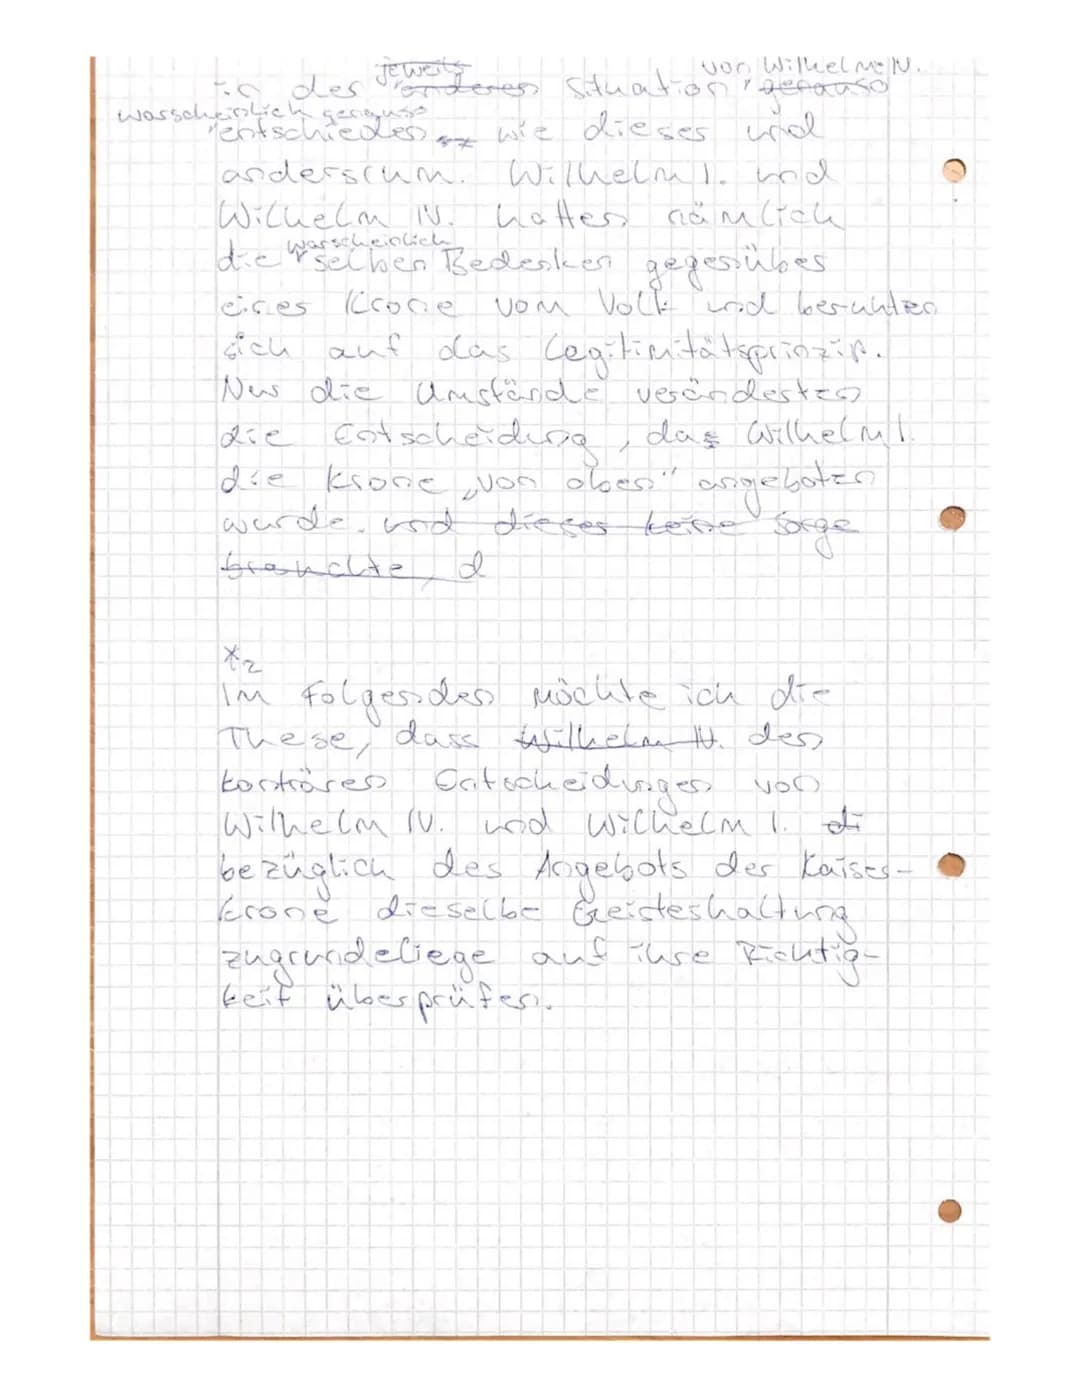 jeweils von Wilhelm IV.
in der anderen Situation genauso
warscheinlich genauso
entschieden wie dieser und
andersrum. Wilhelm I. und
Wilhelm IV. hatten nämlich
warscheinlich
die selben Bedenken gegenüber
einer Krone vom Volk und beruhten
sich auf das Legitimitätsprinzip.
Nur die Umstände veränderten
die Entscheidung, das Wilhelm I.
die Krone „von oben" angeboten
wurde. und dieser keine Sorge
brauchte, d
*2
Im Folgenden möchte ich die
These, dass Wilhelm IV. den
konträren Entscheidungen von
Wilhelm IV. und Wilhelm I. di
bezüglich des Angebots der Kaiser-
krone dieselbe Geisteshaltung
zugrundeliege auf ihre Richtig-
keit überprüfen.